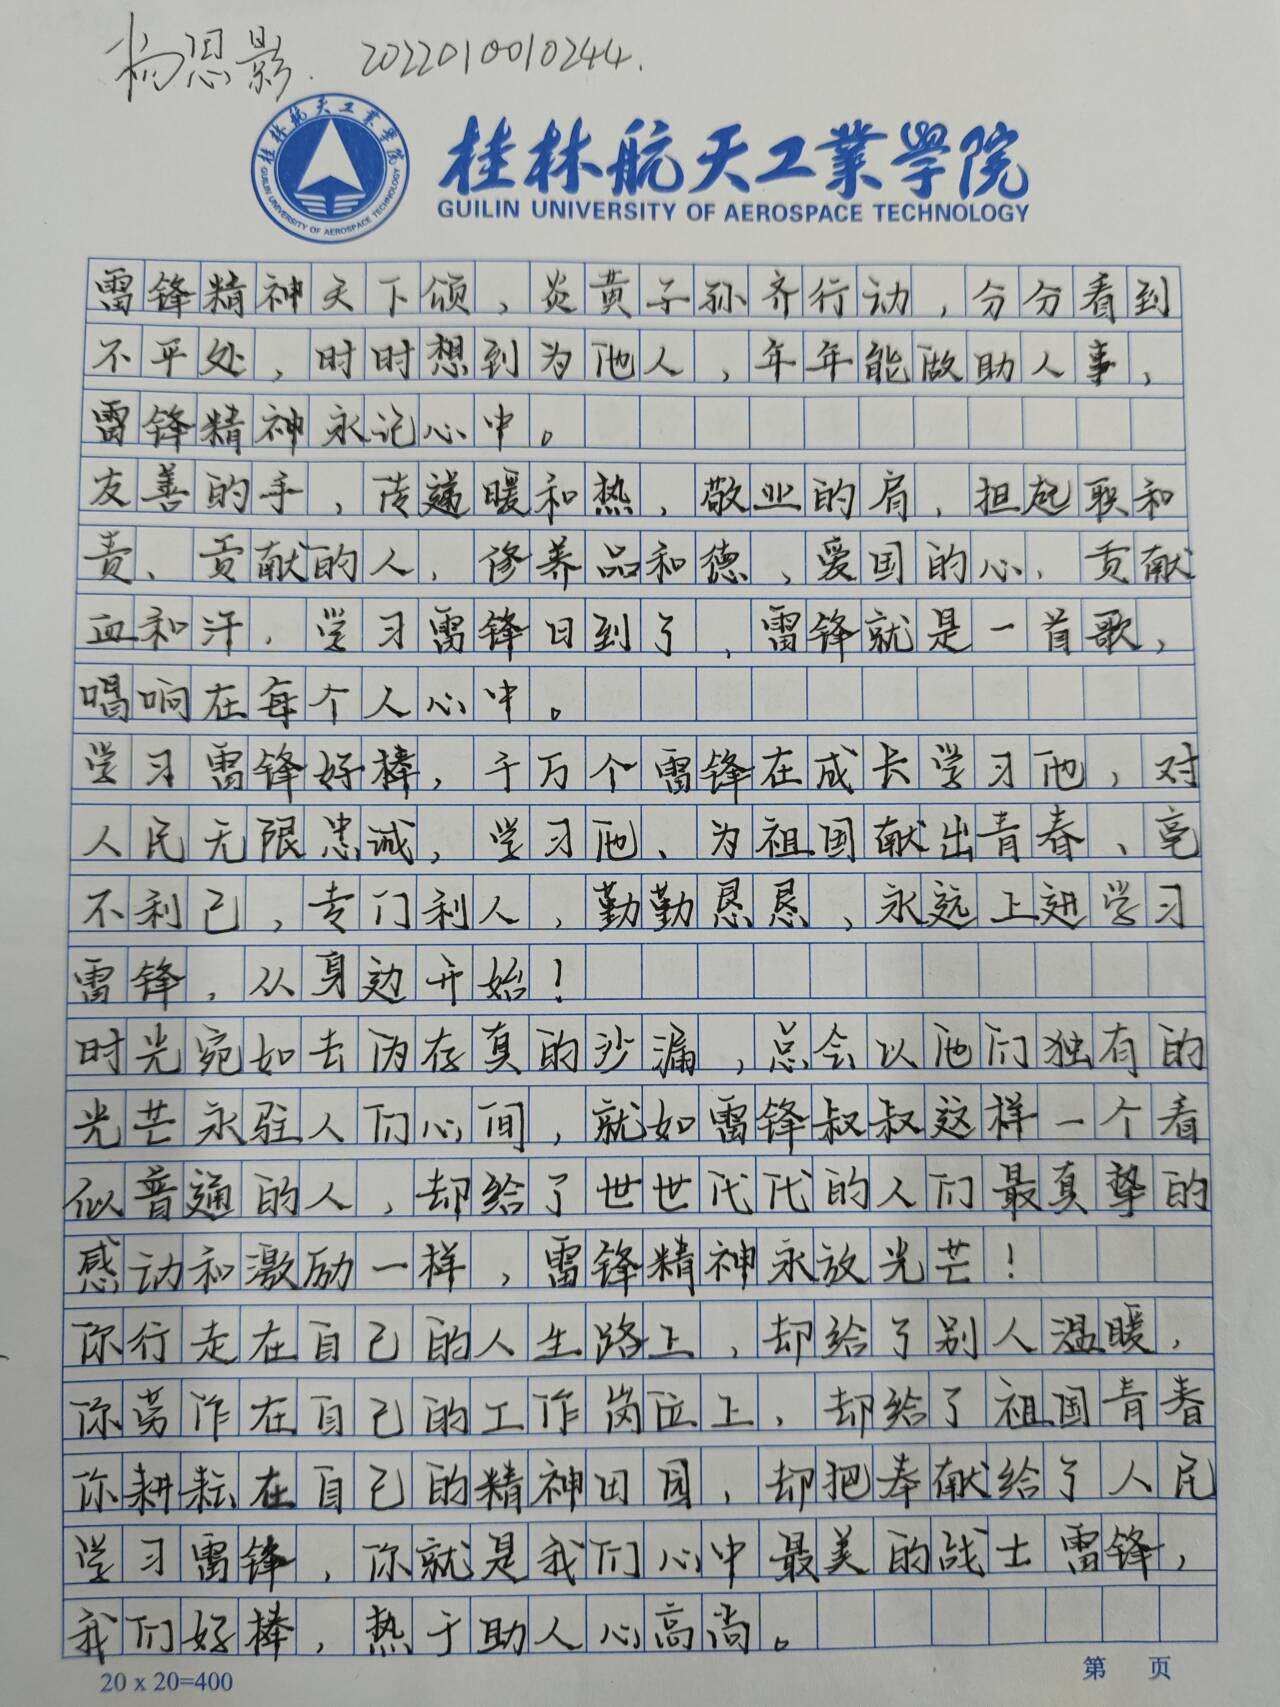 杨恩影. 2022010010244.
桂林航天工業學院
GUILIN UNIVERSITY OF AEROSPACE TECHNOLOGY
桂林航天工業學院
GUILIN UNIVERSITY OF AEROSPACE TECHNOLOGY
雷锋精神天下颂,炎黄子孙齐行动,分分看到
不平处,时时想到为他人,年年能做助人事,
雷锋精神永记心中。
友善的手,传递暖和热,敬业的肩,担起联和
责、贡献的人,修养品和德,爱国的心,贡献
血和汗,学习雷锋日到了,雷锋就是一首歌,
唱响在每个人心中。
学习雷锋好棒,千万个雷锋在成长学习他,对
人民无限忠诚,学习他、为祖国献出青春、毫
不利己,专门利人,勤勤恳恳,永远上进学习
雷锋,从身边开始!
时光宛如去伪存真的沙漏,总会以他们独有的
光芒永驻人们心间,就如雷锋叔叔这样一个看
似普通的人,却给了世世代代的人们最真挚的
感动和激励一样,雷锋精神永放光芒!
你行走在自己的人生路上,却给了别人温暖,
你劳作在自己的工作岗位上,却给了祖国青春
你耕耘在自己的精神田园,却把奉献给了人民
学习雷锋,你就是我们心中最美的战士雷锋,
我们好棒,热于助人心高尚。
20 x 20=400
第 页